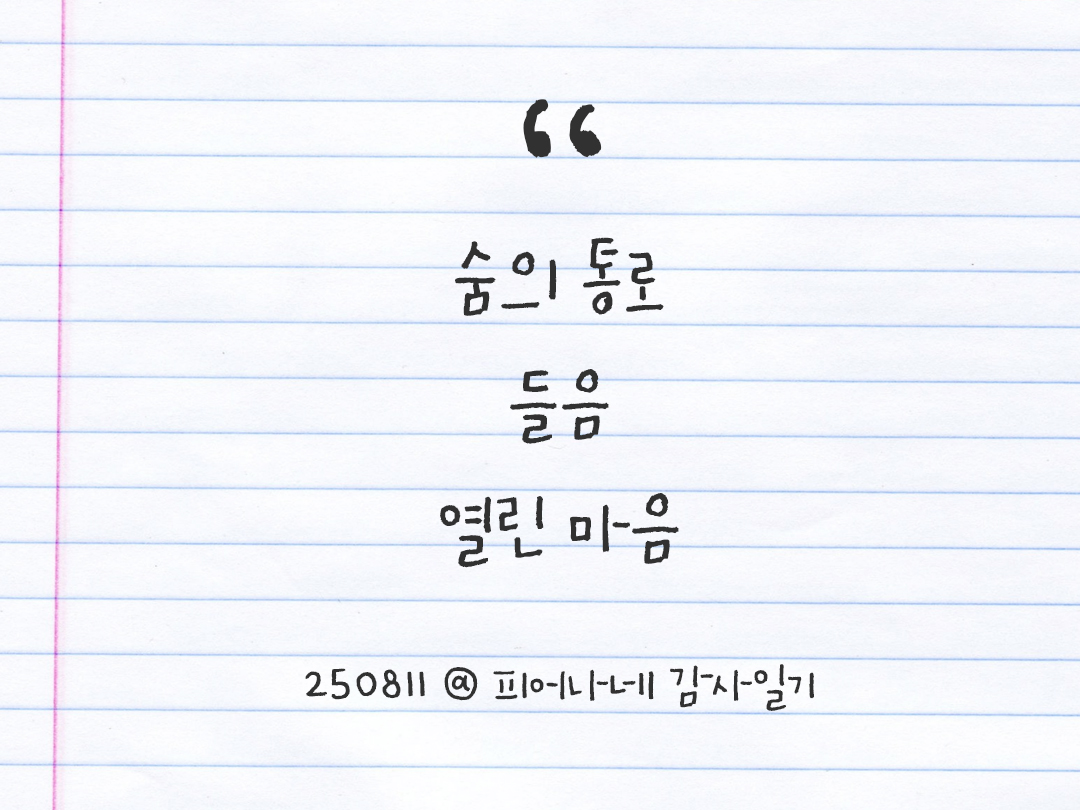 “
숨의 통로
들음
열린 마음
250811 @ 피어나네 감사일기